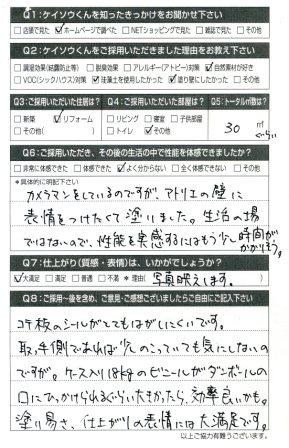 Q1:ケイソウくんを知ったきっかけをお聞かせ下さい
□店頭で見た ☑ホームページで調べた □NETショッピングで見た □雑誌で見た □その他
Q2:ケイソウくんをご採用いただきました理由をお教え下さい
□調湿効果(結露防止等) □脱臭効果 □アレルギー(アトピー)対策 ☑自然素材が好き
□VOC(シックハウス)対策 ☑珪藻土を使用したかった ☑塗り壁にしたかった □その他
Q3:ご採用いただいた住居は? Q4:ご採用いただいた部屋は? Q5:トータル㎡数は?
□新築 ☑リフォーム □リビング □寝室 □子供部屋 30 ㎡ぐらい
□その他( ) □トイレ ☑その他
Q6:ご採用いただき、その後の生活の中で性能を体感できましたか?
□非常に体感できた □体感できた ☑よく分からない □全く体感できない □その他
*具体的に明記下さい
カメラマンをしているのですが、アトリエの壁に
表情をつけたくて塗りました。生活の場
ではないので、性能を実感するにはもう少し時間がかかりそう。
Q7:仕上がり(質感・表情)は、いかがでしょうか?
☑大満足 □満足 □普通 □不満 *理由( 写真映えします。 )
Q8:ご採用〜後を含め、ご意見・ご感想ございましたらご自由にご記入下さい
コテ板のシールがとてもはがしにくいです。
取っ手側であれば少しのこっていても気にしないの
ですが。ケース入り18kgのビニールがダンボールの
口にひっかけられるぐらい大きかったら、効率良いかも。
塗り易さ、仕上がりの表情には大満足です。
以上ご協力有難うございます。